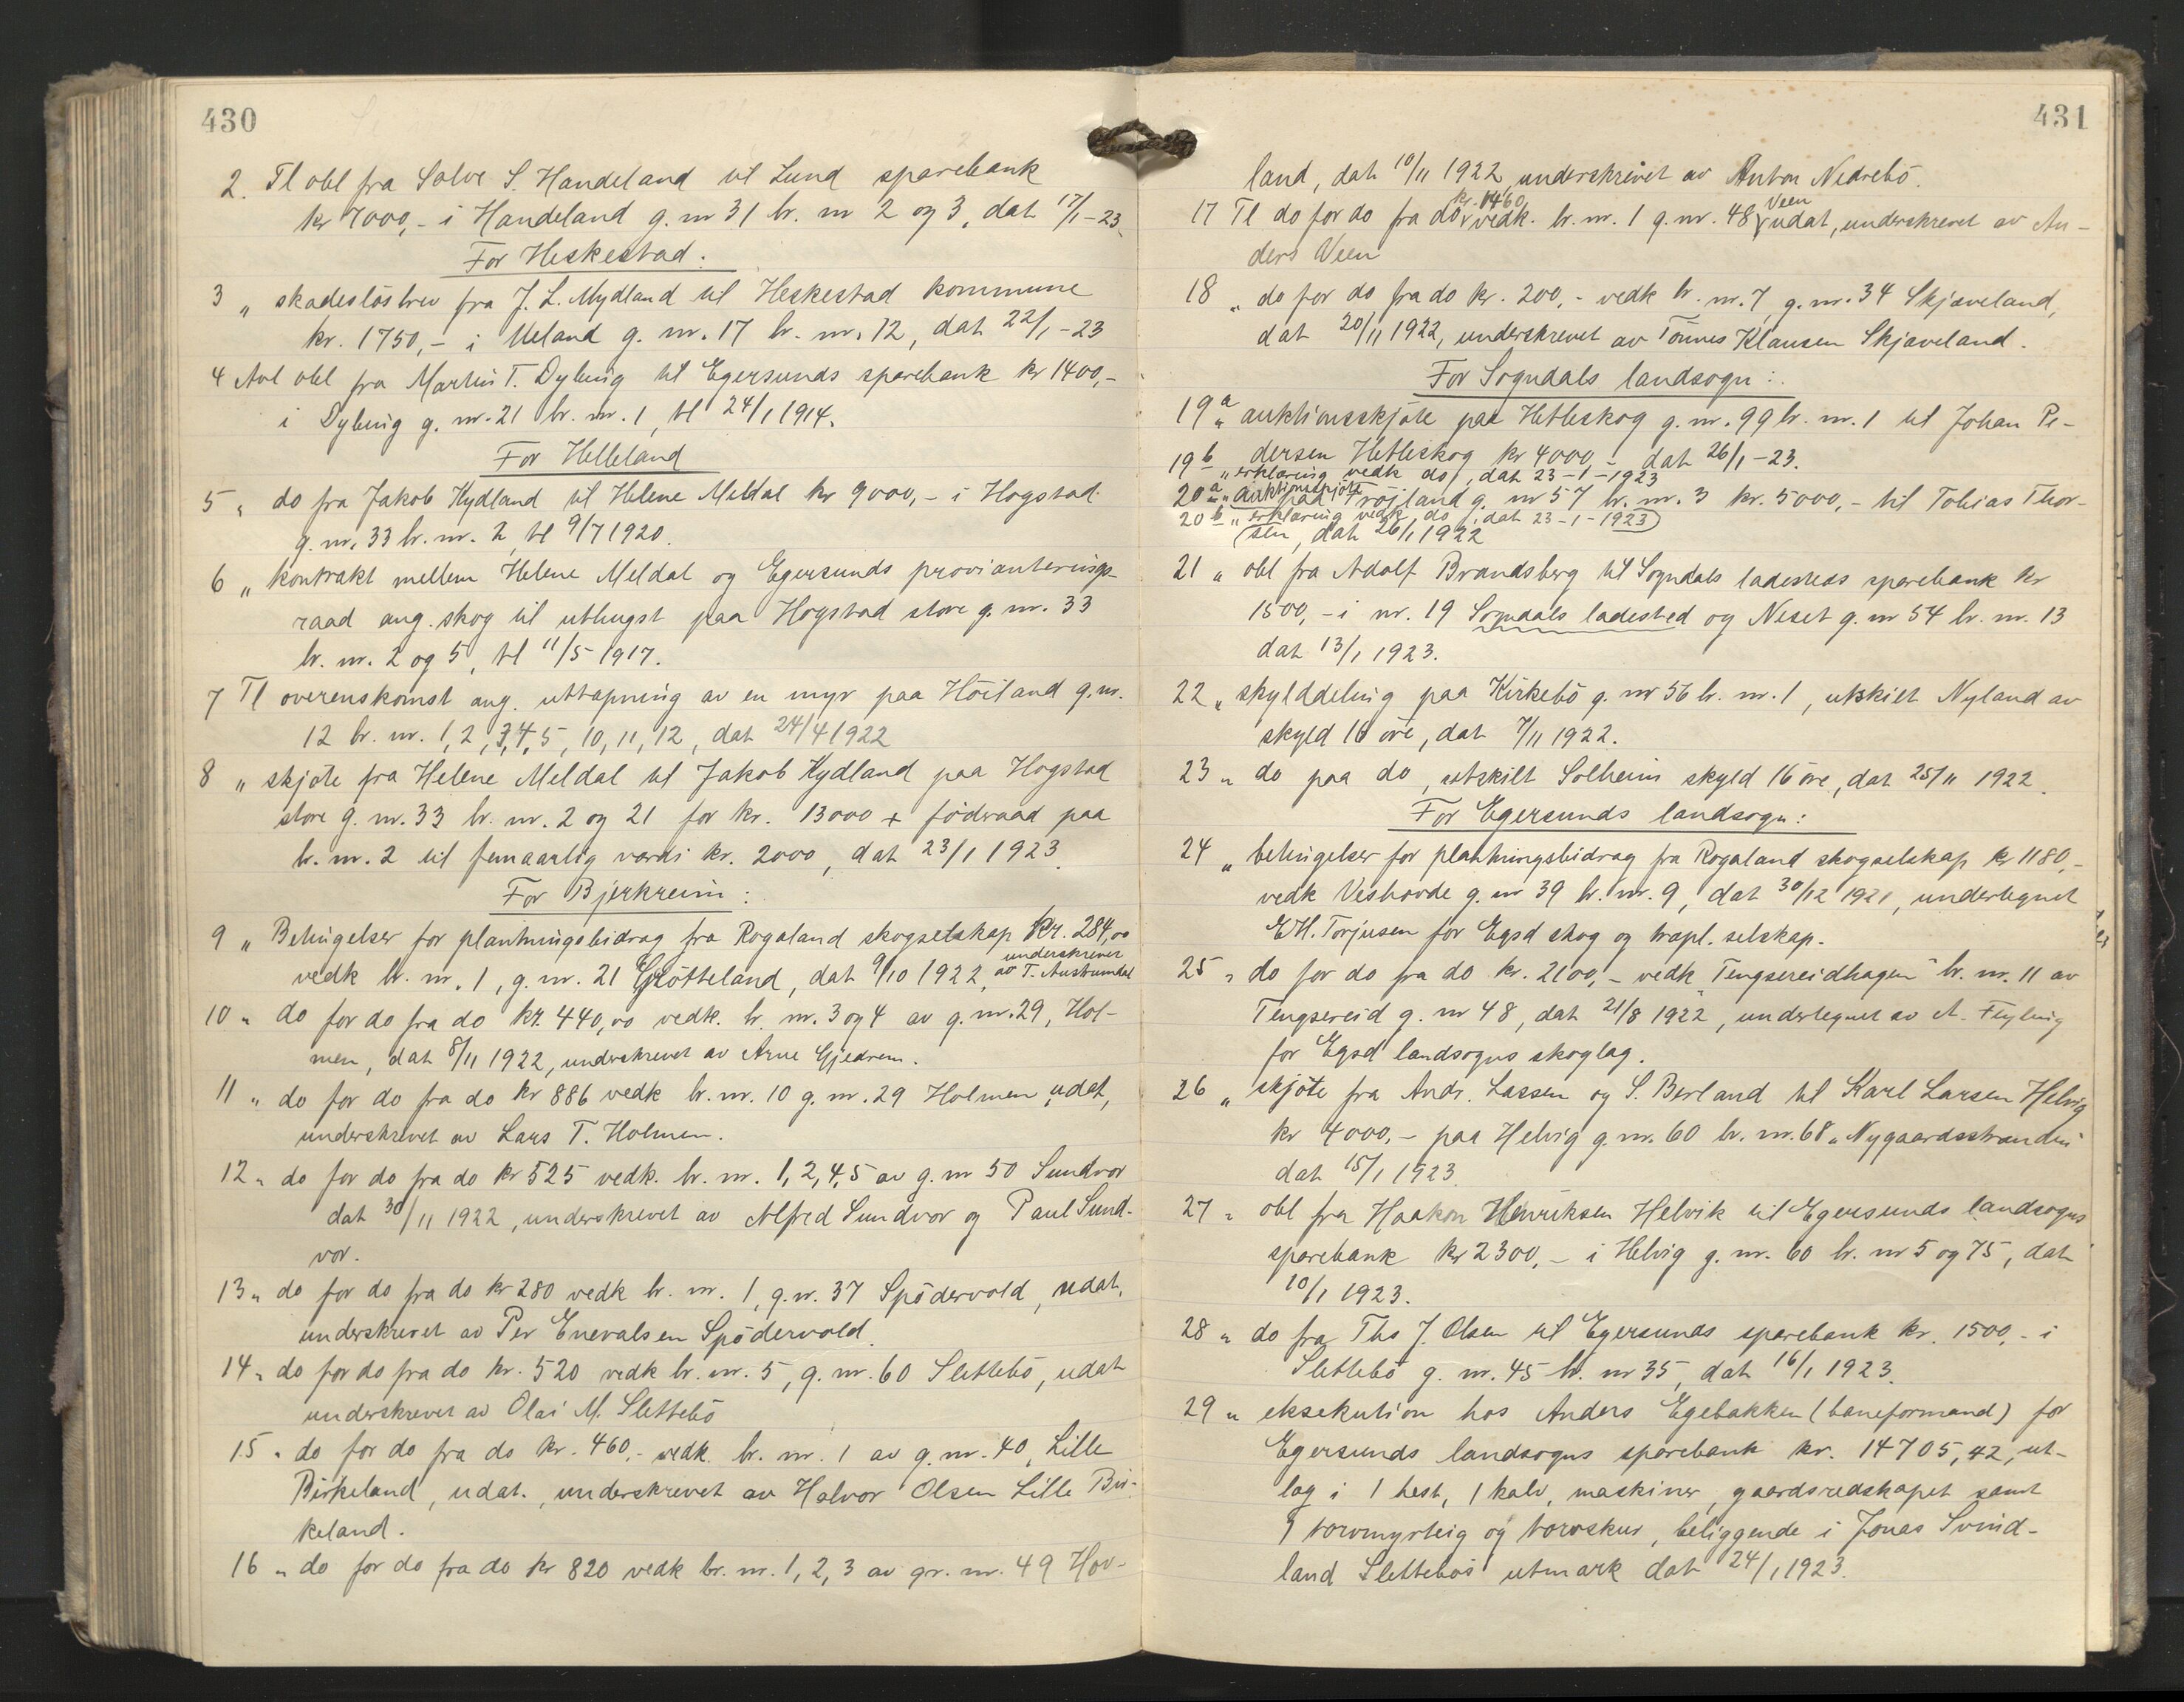 430
2. Tl obl fra Salve S. Handeland til Lund sparebank
kr 7000,- i Handeland g. nr 31 br. nr 2 og 3, dat 17/1-23.
For Heskestad.
3 „ skadeslösbrev fra J. L. Mydland til Heskestad kommune
kr. 1750,- i Ueland g. nr. 17 br. nr. 12, dat 22/1-23
4 Avl obl fra Martin T. Dybing til Egersunds sparebank kr 1400,-
i Dybing g. nr. 21 br. nr. 1, tl 24/1 1914.
For Helleland
5 „ do fra Jakob Hydland til Helene Meldal kr 9000,- i Hogstad
g. nr. 33 br. nr. 2, tl 9/7 1920.
6 „ kontrakt mellem Helene Meldal og Egersunds provianterings-
raad ang. skog til uthugst paa Hogstad store g. nr. 33
br. nr. 2 og 5, tl 11/5 1917.
7 Tl overenskomst ang. uttapning av en myr paa Höiland g. nr.
12 br. nr. 1, 2, 3, 4, 5, 10, 11, 12, dat 24/4 1922
8 „ skjöte fra Helene Meldal til Jakob Hydland paa Hogstad
store g. nr. 33 br. nr. 2 og 21 for kr. 13000 + födraad paa
br. nr. 2 til femaarlig værdi kr. 2000, dat 23/1 1923.
For Bjerkreim:
9 „ Betingelser for plantningsbidrag fra Rogaland skogselskap kr. 284,00
vedk br. nr. 1, g. nr. 21 Grötteland, dat 9/10 1922, underskrevet av T. Austrumdal
10 „ do for do fra do kr. 440,00 vedk. br. nr. 3 og 4 av g. nr. 29, Hol-
men, dat 8/11 1922, underskrevet av Arne Gjedrem.
11 „ do for do fra do kr 886 vedk br. nr. 10 g. nr. 29 Holmen udat,
underskrevet av Lars T. Holmen.
12 „ do for do fra do kr 525 vedk. br. nr. 1, 2, 4, 5 av g. nr 50 Sundvor
dat 30/11 1922, underskrevet av Alfred Sundvor og Paul Sund-
vor.
13 „ do for do fra do kr 280 vedk br. nr. 1, g. nr. 37 Spödervold, udat,
underskrevet av Per Enevalsen Spödervold.
14 „ do for do fra do kr. 520 vedk br. nr. 5, g. nr. 60 Slettebö, udat
underskrevet av Olai M. Slettebö
15 „ do for do fra do kr. 460,- vedk. br. nr. 1 av g. nr. 40, Lille
Birkeland, udat., underskrevet av Halvor Olsen Lille Bir-
keland.
16 „ do for do fra do kr 820 vedk br. nr. 1, 2, 3 av gr. nr. 49 Hov-
431
land, dat 10/11 1922, underskrevet av Anton Nedrebö.
17 Tl do for do fra do kr. 1460 vedk. br. nr. 1 g. nr. 48 Veen udat, underskrevet av An-
ders Veen
18 „ do for do fra do kr. 200,- vedk br. nr. 7, g. nr. 34 Skjæveland,
dat 20/11 1922, underskrevet av Tönnes Klausen Skjæveland.
For Sogndals landsogn:
19 a „ auktionsskjöte paa Hetleskog g. nr. 99 br. nr. 1 til Johan Pe-
dersen Hetleskog kr 4000,- dat 26/1-23.
19 b „ erklæring vedk do, dat 23-1-1923
20 a „ auktionsskjöte paa Fröiland g. nr 57 br. nr. 3 kr. 5000,- til Tobias Thor-
20 b „ erklæring vedk do, dat 23-1-1923
sen, dat 26/1 1922
21 „ obl fra Adolf Brandsberg til Sogndals ladesteds sparebank kr
1500,- i nr. 19 Sogndals ladested og Neset g. nr 54 br. nr. 13
dat 13/1 1923.
22 „ skylddeling paa Kirkebö g. nr 56 br. nr. 1, utskilt Nyland av
skyld 16 öre, dat 7/11 1922.
23 „ do paa do, utskilt Solheim skyld 16 öre, dat 25/11 1922.
For Egersunds landsogn:
24 „ betingelser for plantningsbidrag fra Rogaland skogselskap kr 1180,-
vedk Veshovde g. nr 39 br. nr. 9, dat 30/12 1921, undertegnet
E. H. Torjusen for Egsd skog og trapl. selskap.
25 „ do for do fra do kr. 2100,- vedk „Tengsereidhagen" br. nr. 11 av
Tengsereid g. nr 48, dat 21/8 1922, undertegnet av A. Fuglestig
for Egsd landsogns skoglag.
26 „ skjöte fra Andr. Lassen og S. Berland til Karl Larsen Helvig
kr 4000,- paa Helvig g. nr. 60 br. nr. 68 „Nygaardsstranden"
dat 15/1 1923.
27 „ obl fra Haakon Henriksen Helvik til Egersunds landsogns
sparebank kr 2300,- i Helvig g. nr. 60 br. nr 5 og 75, dat
10/1 1923.
28 „ do fra Ths J. Olsen til Egersunds sparebank kr. 1500,- i
Slettebö g. nr. 45 br. nr 35, dat 16/1 1923.
29 „ eksekution hos Anders Egebakken (baneformand) for
Egersunds landsogns sparebank kr. 14705,42, ut-
lag i 1 hest, 1 kalv, maskiner, gaardsredskapet samt
1 torvmyrteig og torvskur, beliggende i Jonas Svind-
land Slettebös utmark dat 24/1 1923.